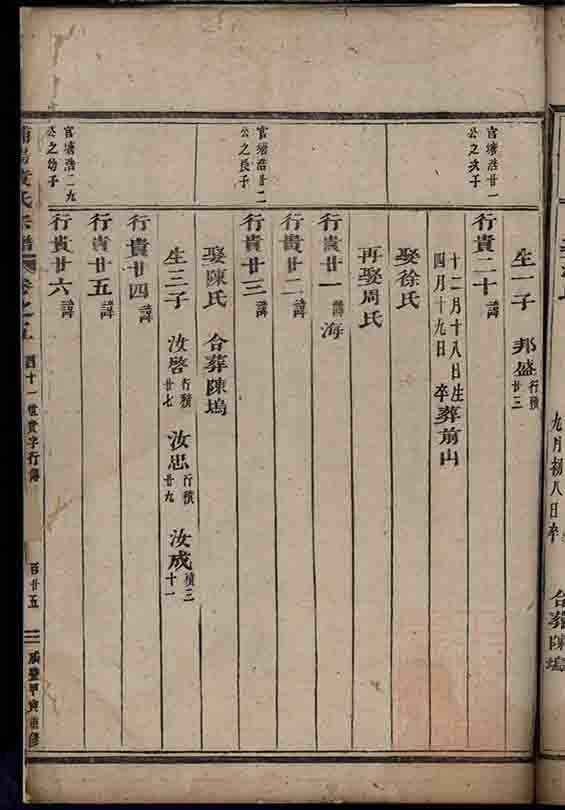 九月初八日卒
合葬陳塢
生一子 邦盛 行積廿三
官塘浩廿一公之次子
行貴二十諱
十二月十八日生
四月十九日卒 葬前山
娶徐氏
再娶周氏
行貴廿一諱海
行貴廿二諱
官塘浩廿二公之長子
行貴廿三諱
娶陳氏 合葬陳塢
生三子 汝啓 行積廿七 汝忠 行積廿九 汝成 積三十一
行貴廿四諱
行貴廿五諱
官塘浩二九公之幼子
行貴廿六諱
氏宗譜 卷之五 四十一世貴字行傳 百廿五 咸豐甲寅重修